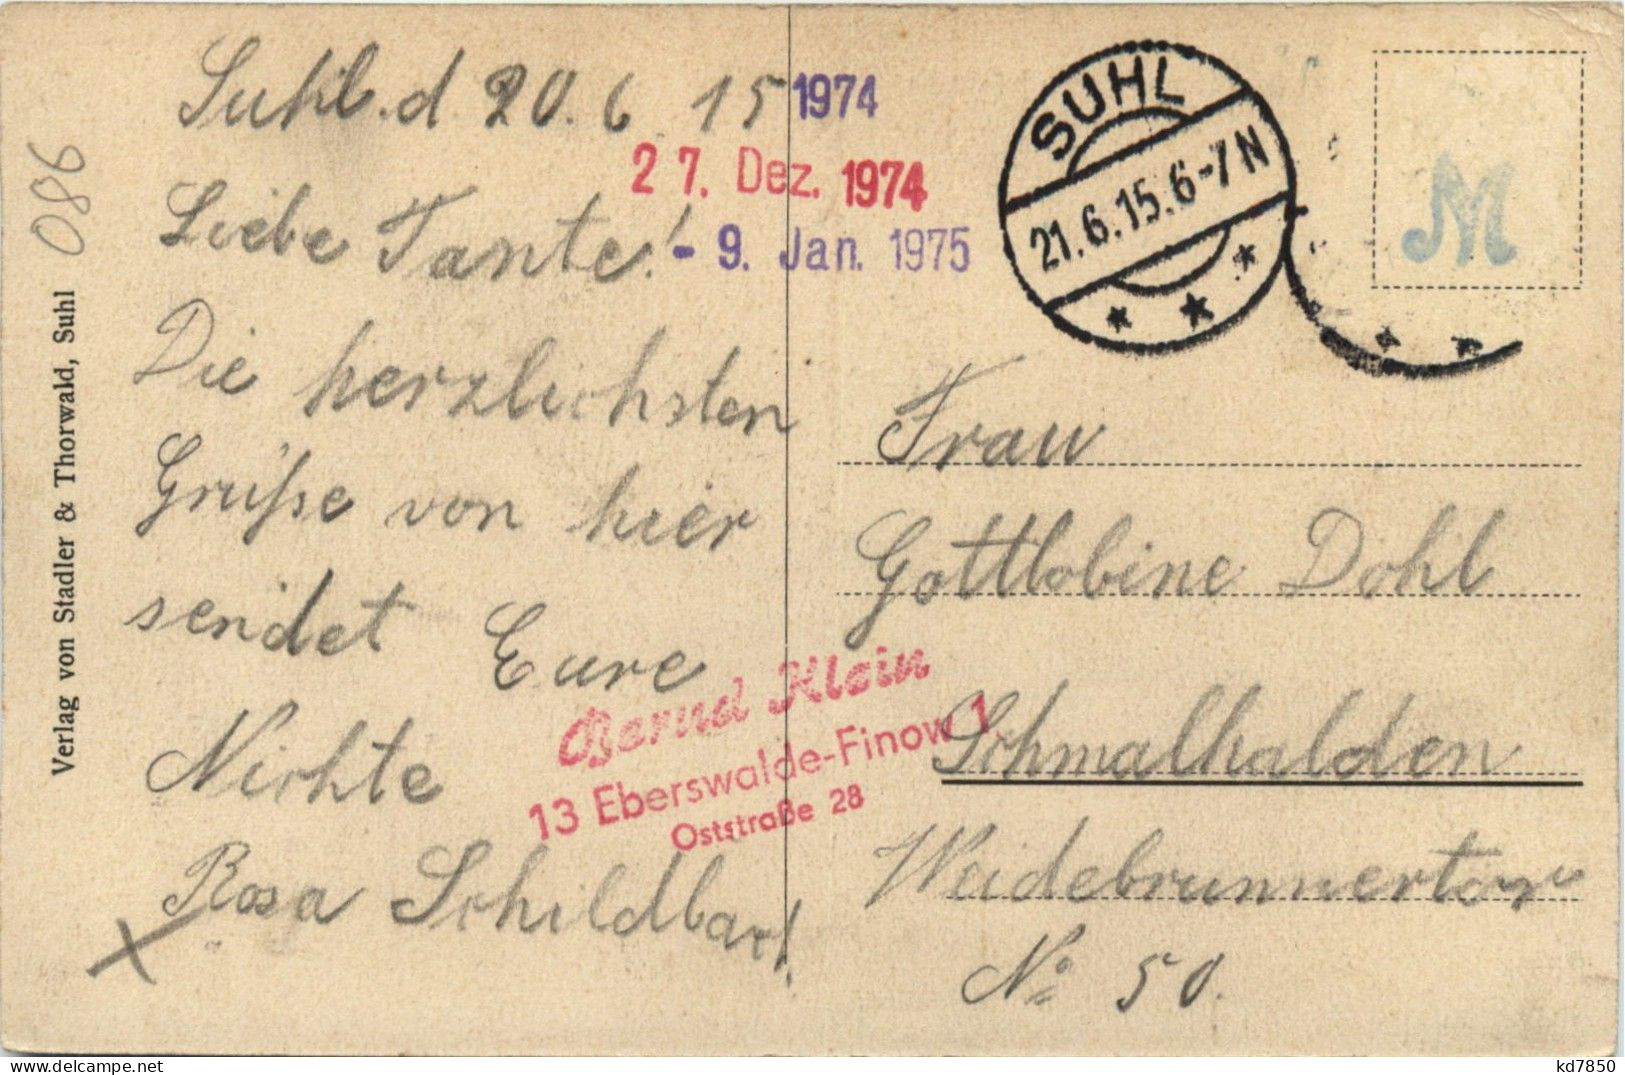 Suhl. d 20. 6 15
1974
27. Dez. 1974
- 9. Jan. 1975
Liebe Tante!
Die herzlichsten
Grüße von hier
sendet Eure
Nichte
Rosa Schildbach!
086
Verlag von Stadler & Thorwald, Suhl
SUHL
21.6.15.6-7N
M
Frau
Gottlobine Dohl
Schmalkalden
Weidebrunnertor
No 50.
Bernd Klein
13 Eberswalde-Finow 1
Oststraße 28
kd7850